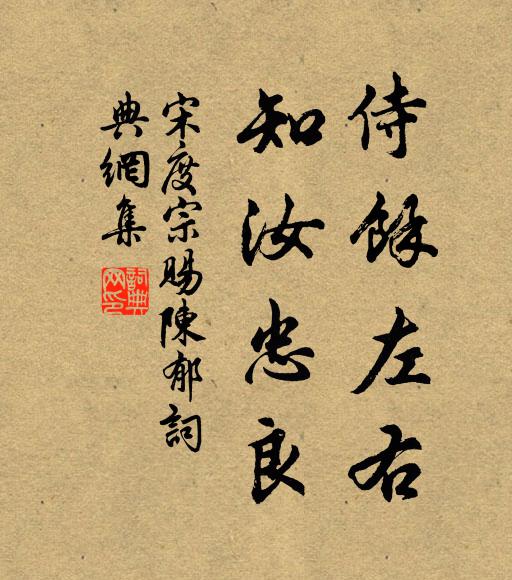 侍餘左右
知汝忠良
宋度宗賜陳郁詞
典網集
詞典網印